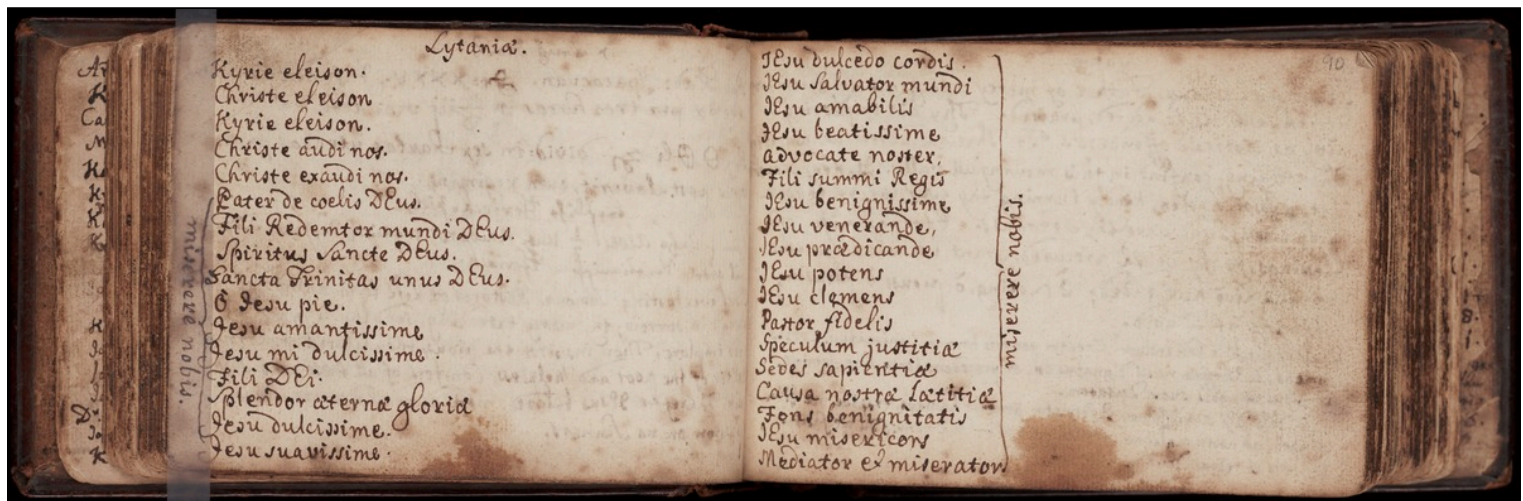 Lytaniæ.
Kyrie eleison.
Christe eleison
Kyrie eleison.
Christe audi nos.
Christe exaudi nos.
Pater de coelis DEus.
Fili Redemtor mundi DEus.
Spiritus Sancte DEus.
Sancta Trinitas unus DEus.
O Jesu pie.
Jesu amantissime
Jesu mi dulcissime.
Fili DEi.
Splendor æternæ gloriæ
Jesu dulcissime.
Jesu suavissime.
miserere nobis.
90
JEsu dulcedo cordis.
JEsu Salvator mundi
JEsu amabilis
JEsu beatissime
advocate noster,
Fili summi Regis
JEsu benignissime
JEsu venerande,
JEsu prædicande
JEsu potens
JEsu clemens
Pastor fidelis
Speculum justitiæ
Sedes sapientiæ
Causa nostræ lætitiæ
Fons benignitatis
JEsu misericors
Mediator et miserator
miserere nobis.